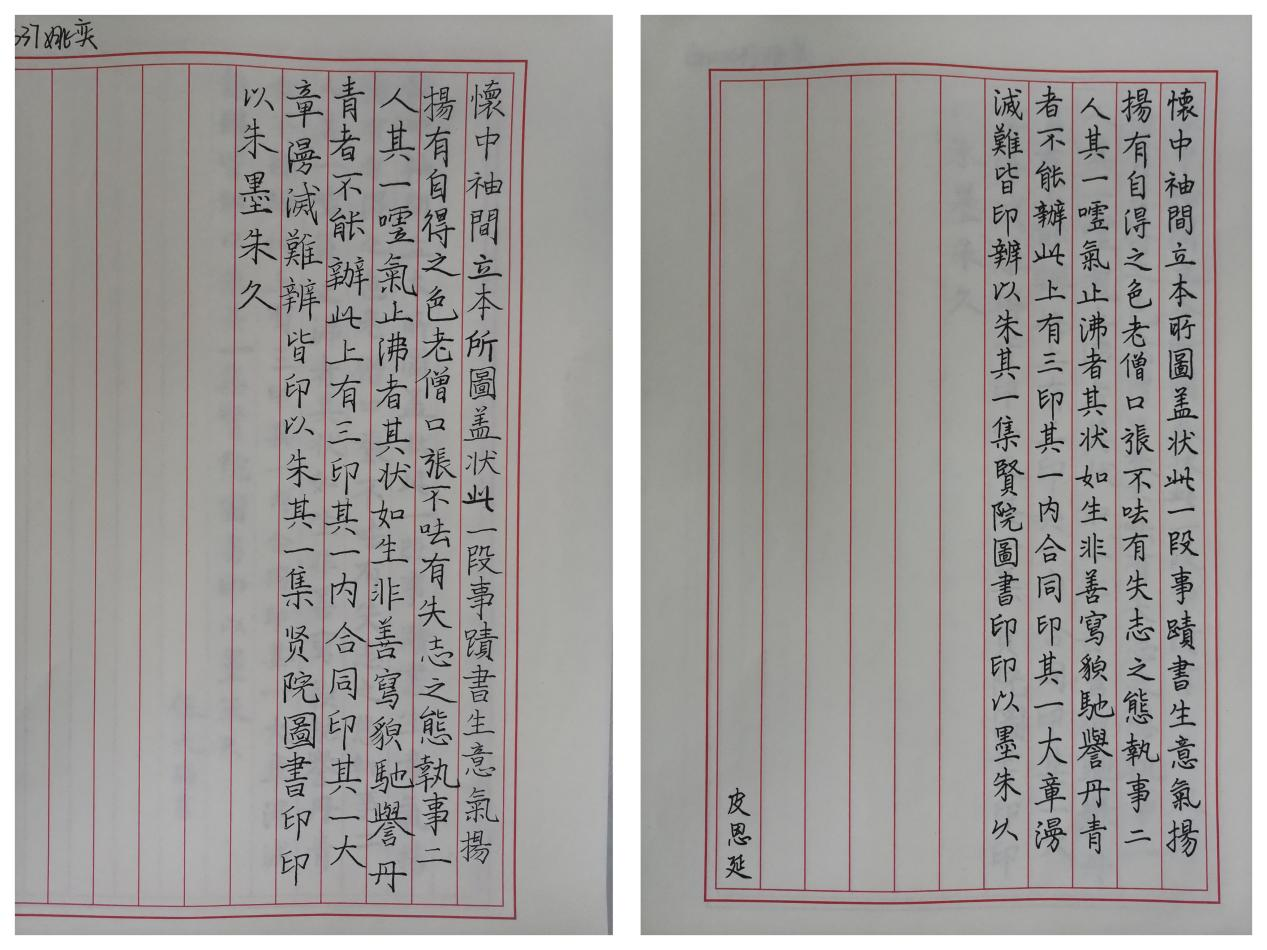 037姚奕
懷中袖間立本所圖盖状此一段事蹟書生意氣揚
揚有自得之色老僧口張不呿有失志之態執事二
人其一嘘氣止沸者其状如生非善寫貌馳譽丹
青者不能辦此上有三印其一内合同印其一大
章漫滅難辨皆印以朱其一集贤院圖書印印
以朱墨朱久
懷中袖間立本所圖盖状此一段事蹟書生意氣揚
揚有自得之色老僧口張不呿有失志之態執事二
人其一嘘氣止沸者其状如生非善寫貌馳譽丹青
者不能辦此上有三印其一内合同印其一大章漫
滅難皆印辨以朱其一集賢院圖書印印以墨朱以
皮恩延